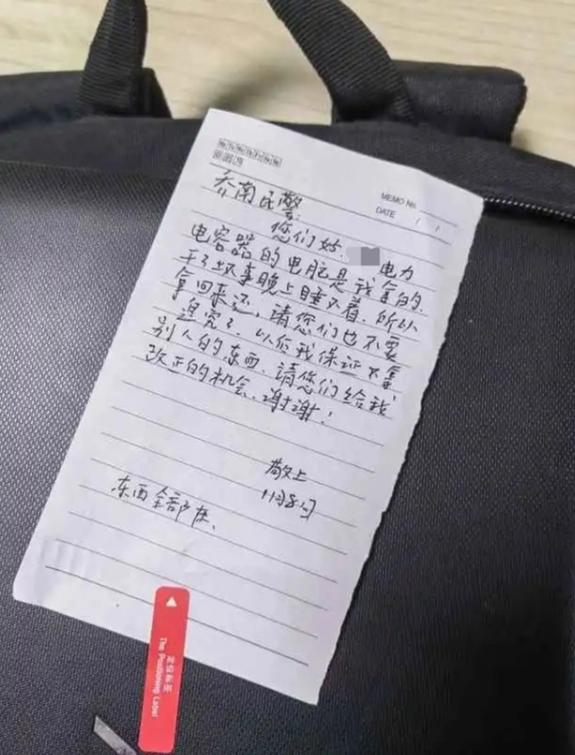 MEMO No.
DATE / /
乔南民警:
您们好. 电力
电容器的电脑是我拿的.
干了坏事晚上睡不着. 所以
拿回来还, 请您们也不要
追究了. 以后我保证不拿
别人的东西. 请您们给我
改正的机会. 谢谢!
敬上
11月8日
东西全部在.
The Positioning Label